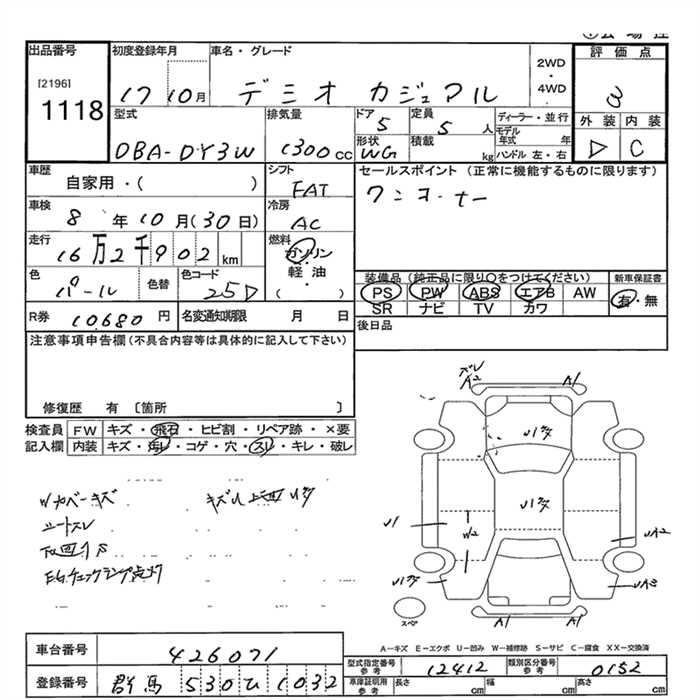 出品番号 初度登録年月 車名・グレード 2WD・4WD 評価点
[2196]
1118 17 10月 デミオ カジュアル 3
型式 排気量 ドア 定員 ディーラー・並行 外装 内装
DBA-DY3W 1300cc 5 5人 モデル年式 年 C
形状 積載 ハンドル 左・右
WG kg
車歴 自家用・( ) シフト FAT セールスポイント (正常に機能するものに限ります)
車検 8年10月(30日) 冷房 AC ワンオーナー
走行 16万2千902km 燃料 ガソリン・軽油( )
色 パール 色替 色コード 25D 装備品(純正品に限り○をつけてください) 新車保証書
PS PW ABS エアB AW 有・無
SR ナビ TV カワ
R券 10680円 名変通知期限 月 日 後日品
注意事項申告欄(不具合内容等は具体的に記入して下さい)
修復歴 有 〔箇所 〕
検査員 FW キズ・飛石・ヒビ割・リペア跡・×要
記入欄 内装 キズ・汚レ・コゲ・穴・スレ・キレ・破レ
ズレ
A2 A1
U1タタ
Wカバーキズ
シートスレ
U1タタ
U1 W2 UA2
EGチェックランプ点灯
U1タタ UA3
スペア
A1 A1
A－キズ E－エクボ U－凹み W－補修跡 S－サビ C－腐食 XX－交換済
車台番号 426071
型式指定番号 参考 12412 類別区分番号 参考 0152
登録番号 群馬 530 ひ 1032
車庫証明用 参考 長さ cm 幅 cm 高さ cm